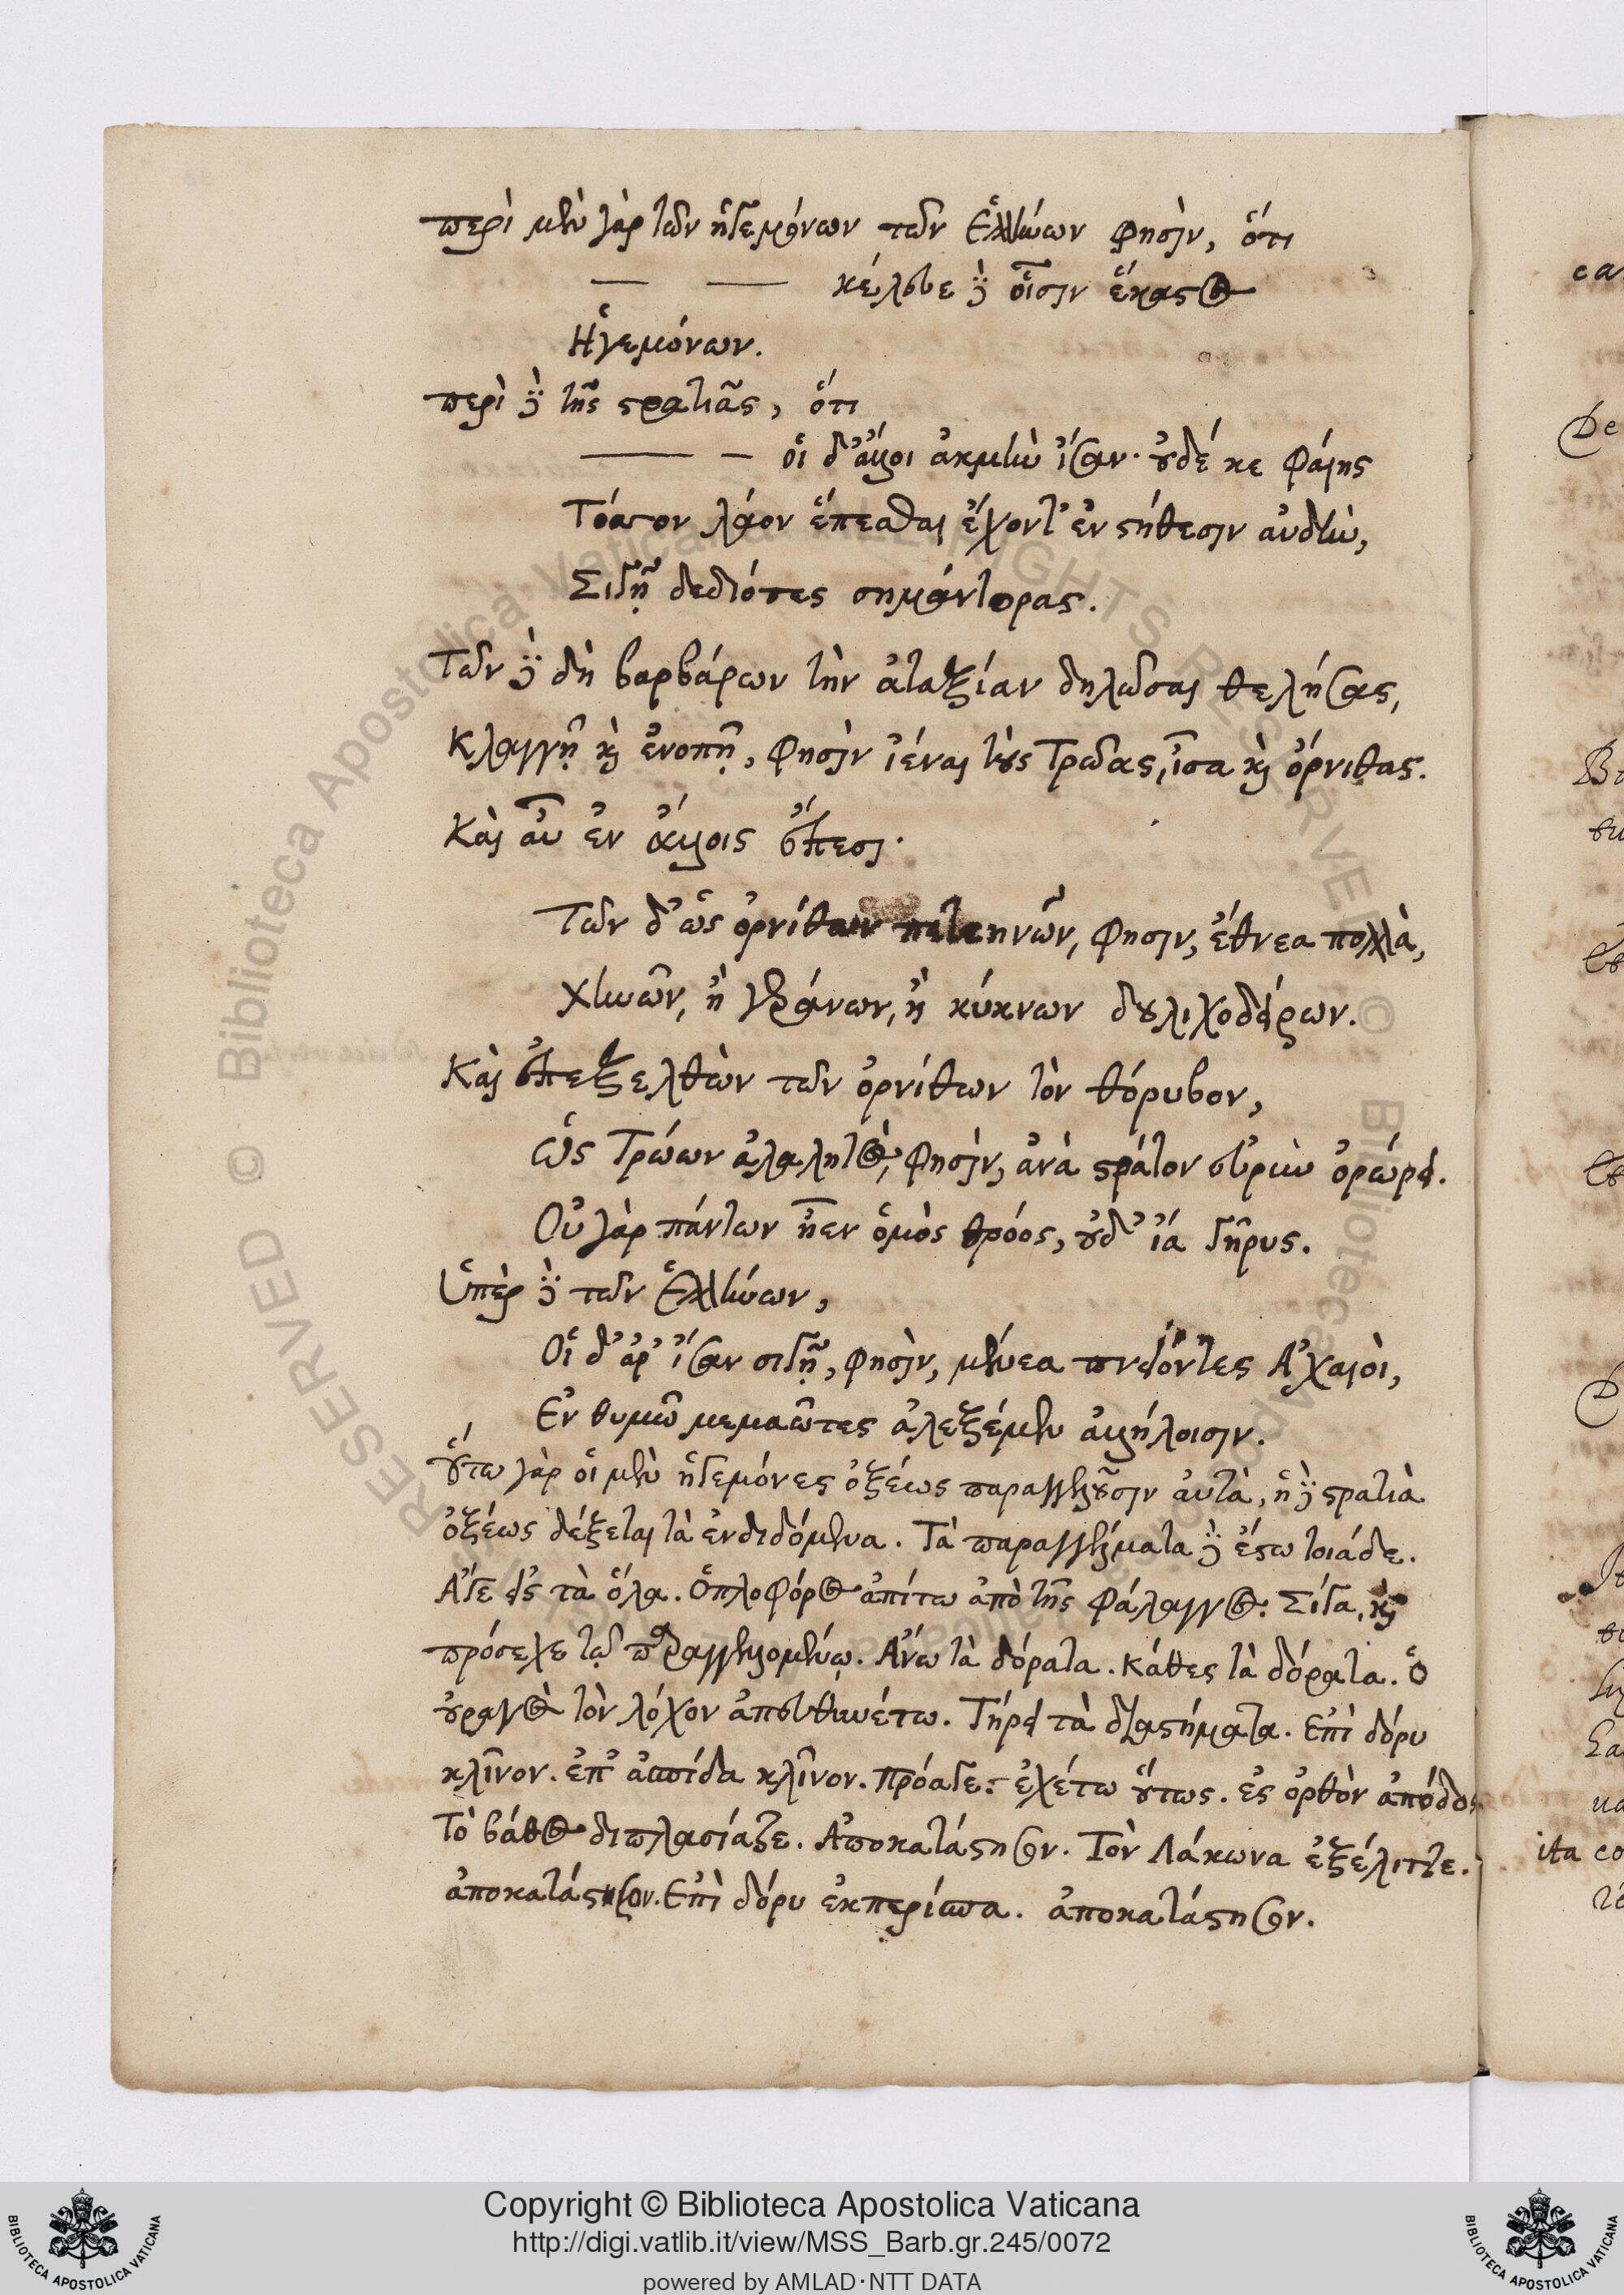 περὶ μὲν γὰρ τῶν ἡγεμόνων τῶν Ἑλλήνων φησὶν, ὅτι
— — κέλευε δὲ οἷσιν ἕκαστος
Ἡγεμόνων.
περὶ δὲ τῆς στρατιᾶς, ὅτι
— — οἱ δ' ἄλλοι ἀκμὴν ἴσαν· οὐδέ κε φαίης
Τόσσον λάον ἕπεσθαι ἔχοντ' ἐν στήθεσιν αὐδὴν,
Σιγῇ δεδιότες σημάντορας.
Τῶν δὲ δὴ βαρβάρων τὴν ἀταξίαν δηλῶσαι θελήσας,
κλαγγῇ καὶ ἐνοπῇ, φησὶν ἰέναι τοὺς Τρῶας, ἶσα καὶ ὄρνιθας.
Καὶ αὖ ἐν ἄλλοις ἔπεσι·
Τῶν δ' ὡς ὀρνίθων πετεηνῶν, φησιν, ἔθνεα πολλὰ,
χηνῶν, ἢ γεράνων, ἢ κύκνων δουλιχοδείρων.
Καὶ ἐπεξελθὼν τῶν ὀρνίθων τὸν θόρυβον,
ὣς Τρώων ἀλαλητὸς, φησὶν, ἀνὰ στράτον εὐρὺν ὀρώρει.
Οὐ γὰρ πάντων ἦεν ὁμὸς θρόος, οὐδ' ἴα γῆρυς.
Ὑπὲρ δὲ τῶν Ἑλλήνων,
Οἱ δ' ἄρ' ἴσαν σιγῇ, φησὶν, μένεα πνείοντες Ἀχαιοὶ,
Ἐν θυμῶ μεμαῶτες ἀλεξέμεν ἀλλήλοισιν.
οὕτω γὰρ οἱ μὲν ἡγεμόνες ὀξέως παραγγελοῦσιν αὐτὰ, ἡ δὲ στρατιὰ
ὀξέως δέξεται τὰ ἐνδιδόμενα. Τὰ παραγγέλματα δὲ ἔστω τοιάδε.
Ἄγε εἰς τὰ ὅλα. Ὁπλοφόρος ἀπίτω ἀπὸ τῆς φάλαγγος. Σίγα, καὶ
πρόσεχε τῷ παραγγελλομένῳ. Ἄνω τὰ δόρατα. κάθες τὰ δόρατα. ὁ
οὐραγὸς τὸν λόχον ἀπευθυνέτω. Τήρει τὰ διαστήματα. Ἐπὶ δόρυ
κλῖνον. ἐπ' ἀσπίδα κλῖνον. πρόαγε. ἐχέτω οὕτως. ἐς ὀρθὸν ἀπόδος
Τὸ βάθος διπλασίαζε. Ἀποκατάστησον. Τὸν Λάκωνα ἐξέλιττε.
ἀποκατάστησον. Ἐπὶ δόρυ ἐκπερίσπα. ἀποκατάστησον.
Copyright © Biblioteca Apostolica Vaticana
http://digi.vatlib.it/view/MSS_Barb.gr.245/0072
powered by AMLAD·NTT DATA